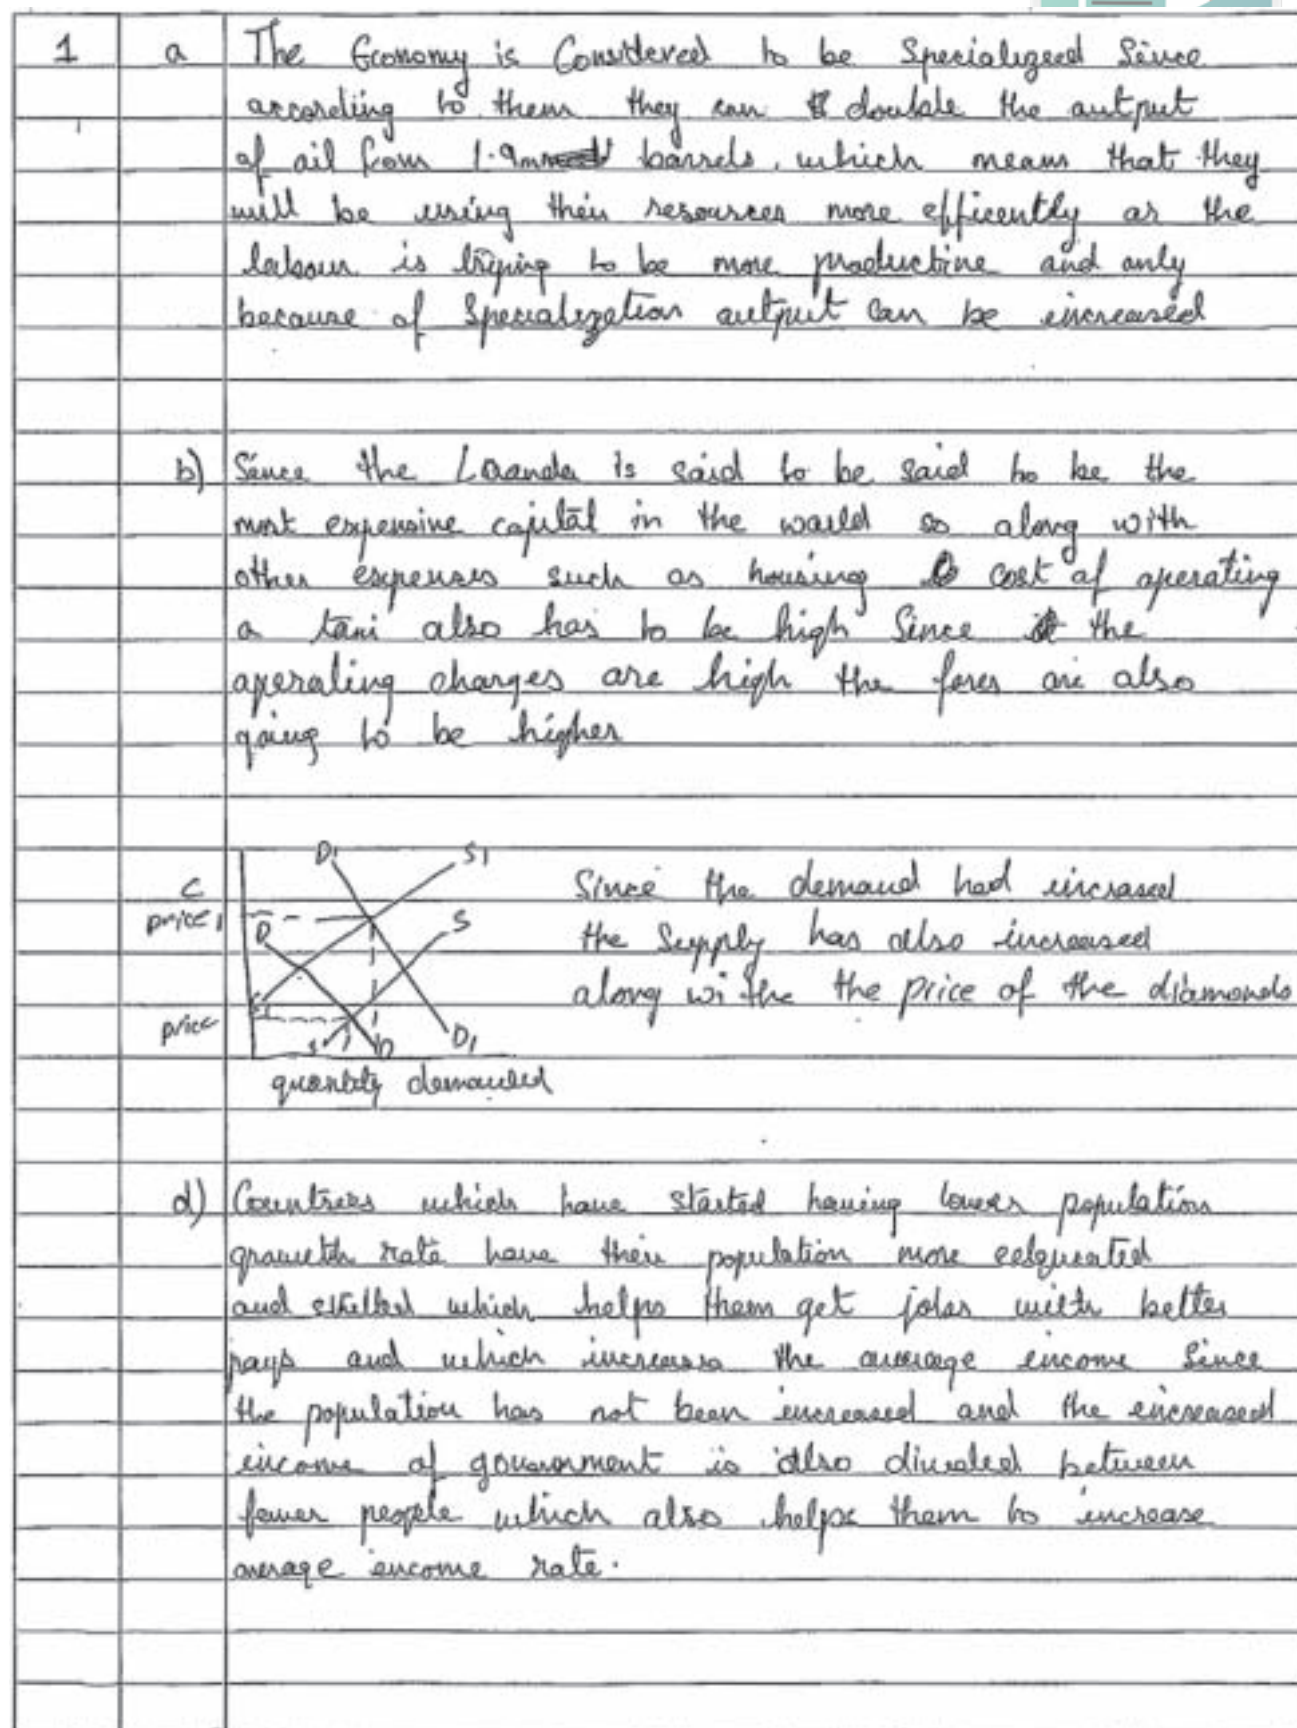 1 a The Economy is Considered to be Specialized Since
according to them they can double the output
of oil from 1.9m barrels. which means that they
will be using their resources more efficently as the
labour is trying to be more productive and only
because of Specialization output can be increased
b) Since the Luanda is said to be said to be the
most expensive capital in the world so along with
other expenses such as housing cost of operating
a taxi also has to be high Since the
operating charges are high the fares are also
going to be higher
c
D1 S1
price 1
D S
price
S D D1
quantity demanded
Since the demand had increased
the Supply has also increased
along wi the the price of the diamonds
d) Countries which have started having lower population
growth rate have their population more
and skilled which helps them get jobs with better
pays and which increases the average income Since
the population has not been increased and the increased
income of government is also divided between
fewer people which also helps them to increase
average income rate.